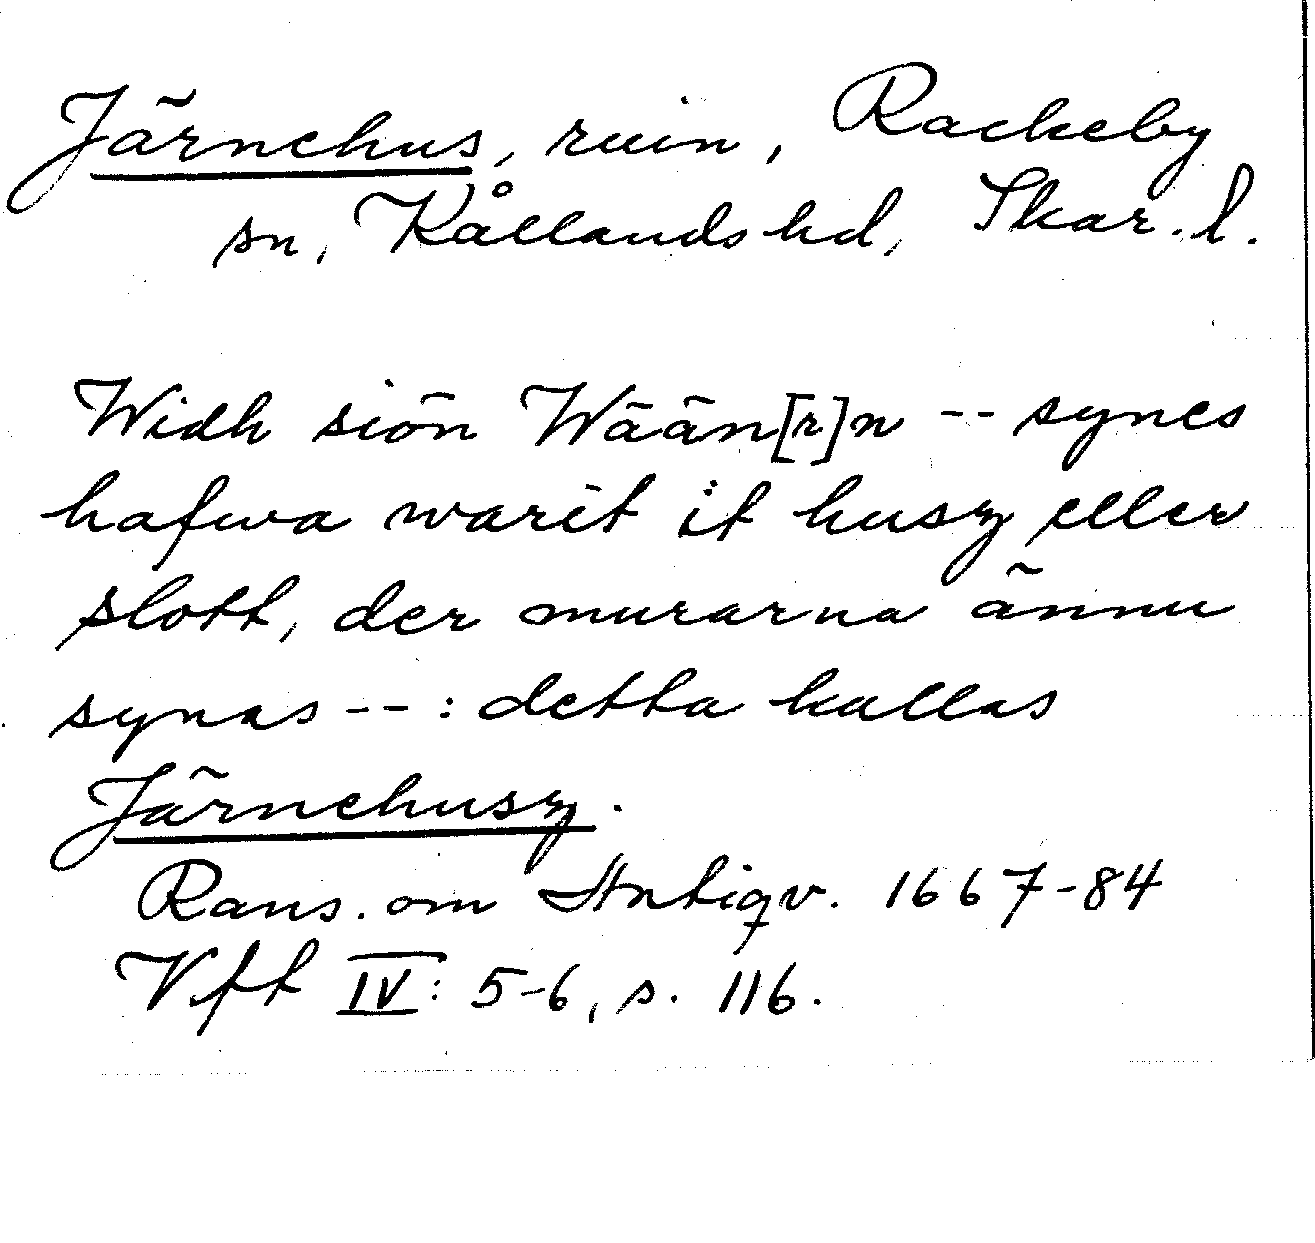 Järnehus, ruin, Rackeby
sn, Kållands hd, Skar. l.
Widh siön Wään[r]n -- synes
hafwa warit it husz eller
slott, der murarna ännu
synas -- : detta kallas
Järnehusz.
Rans. om Antiqv. 1667-84
Vft IV: 5-6, s. 116.